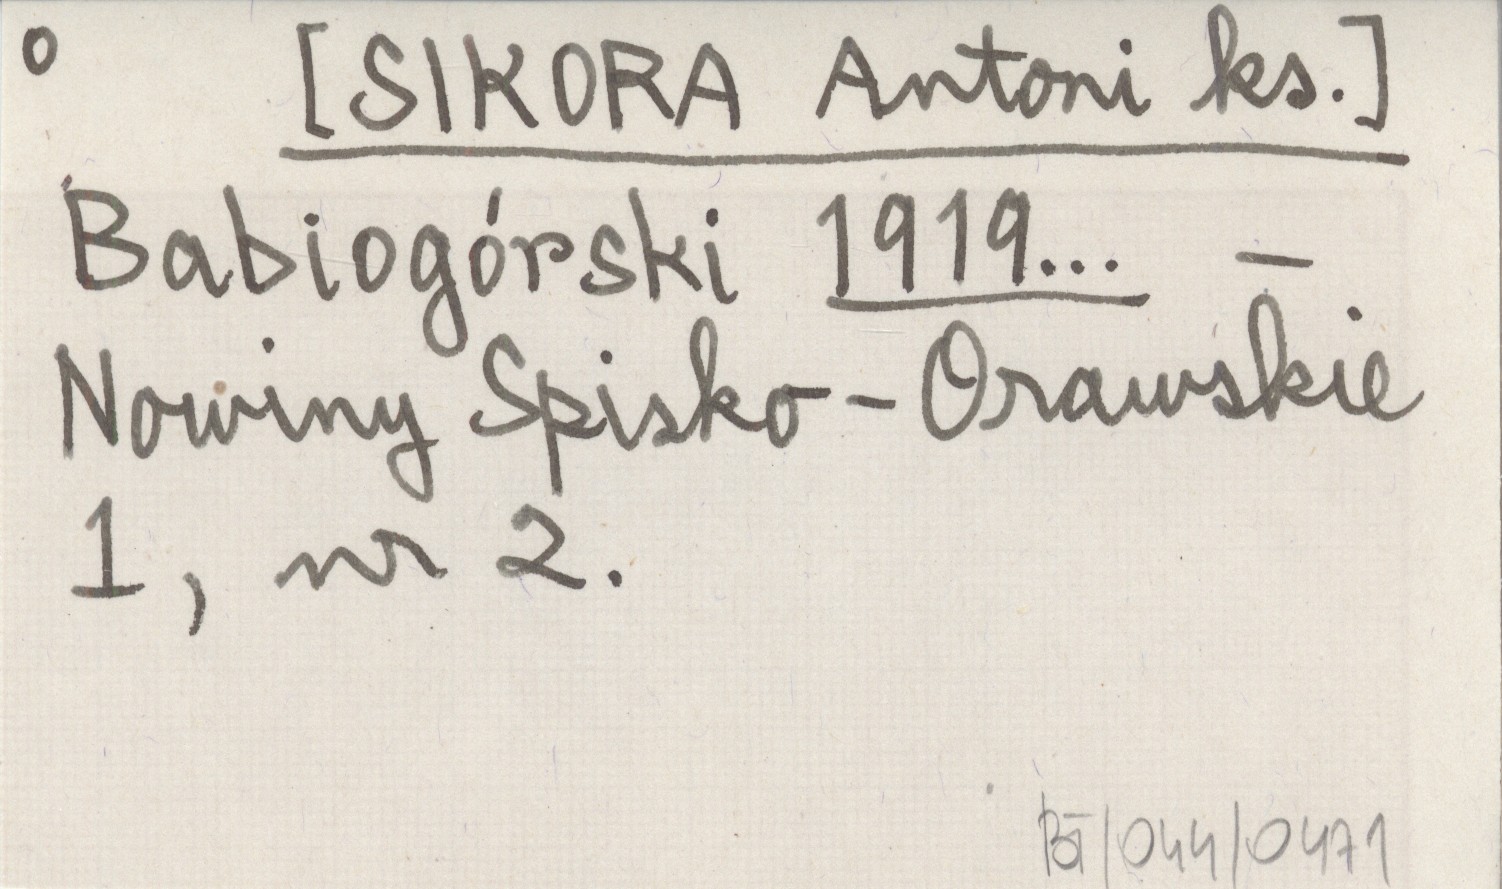 o [SIKORA Antoni ks.]
Babiogórski 1919... —
Nowiny Spisko-Orawskie
1, nr 2.
BG/044/0471